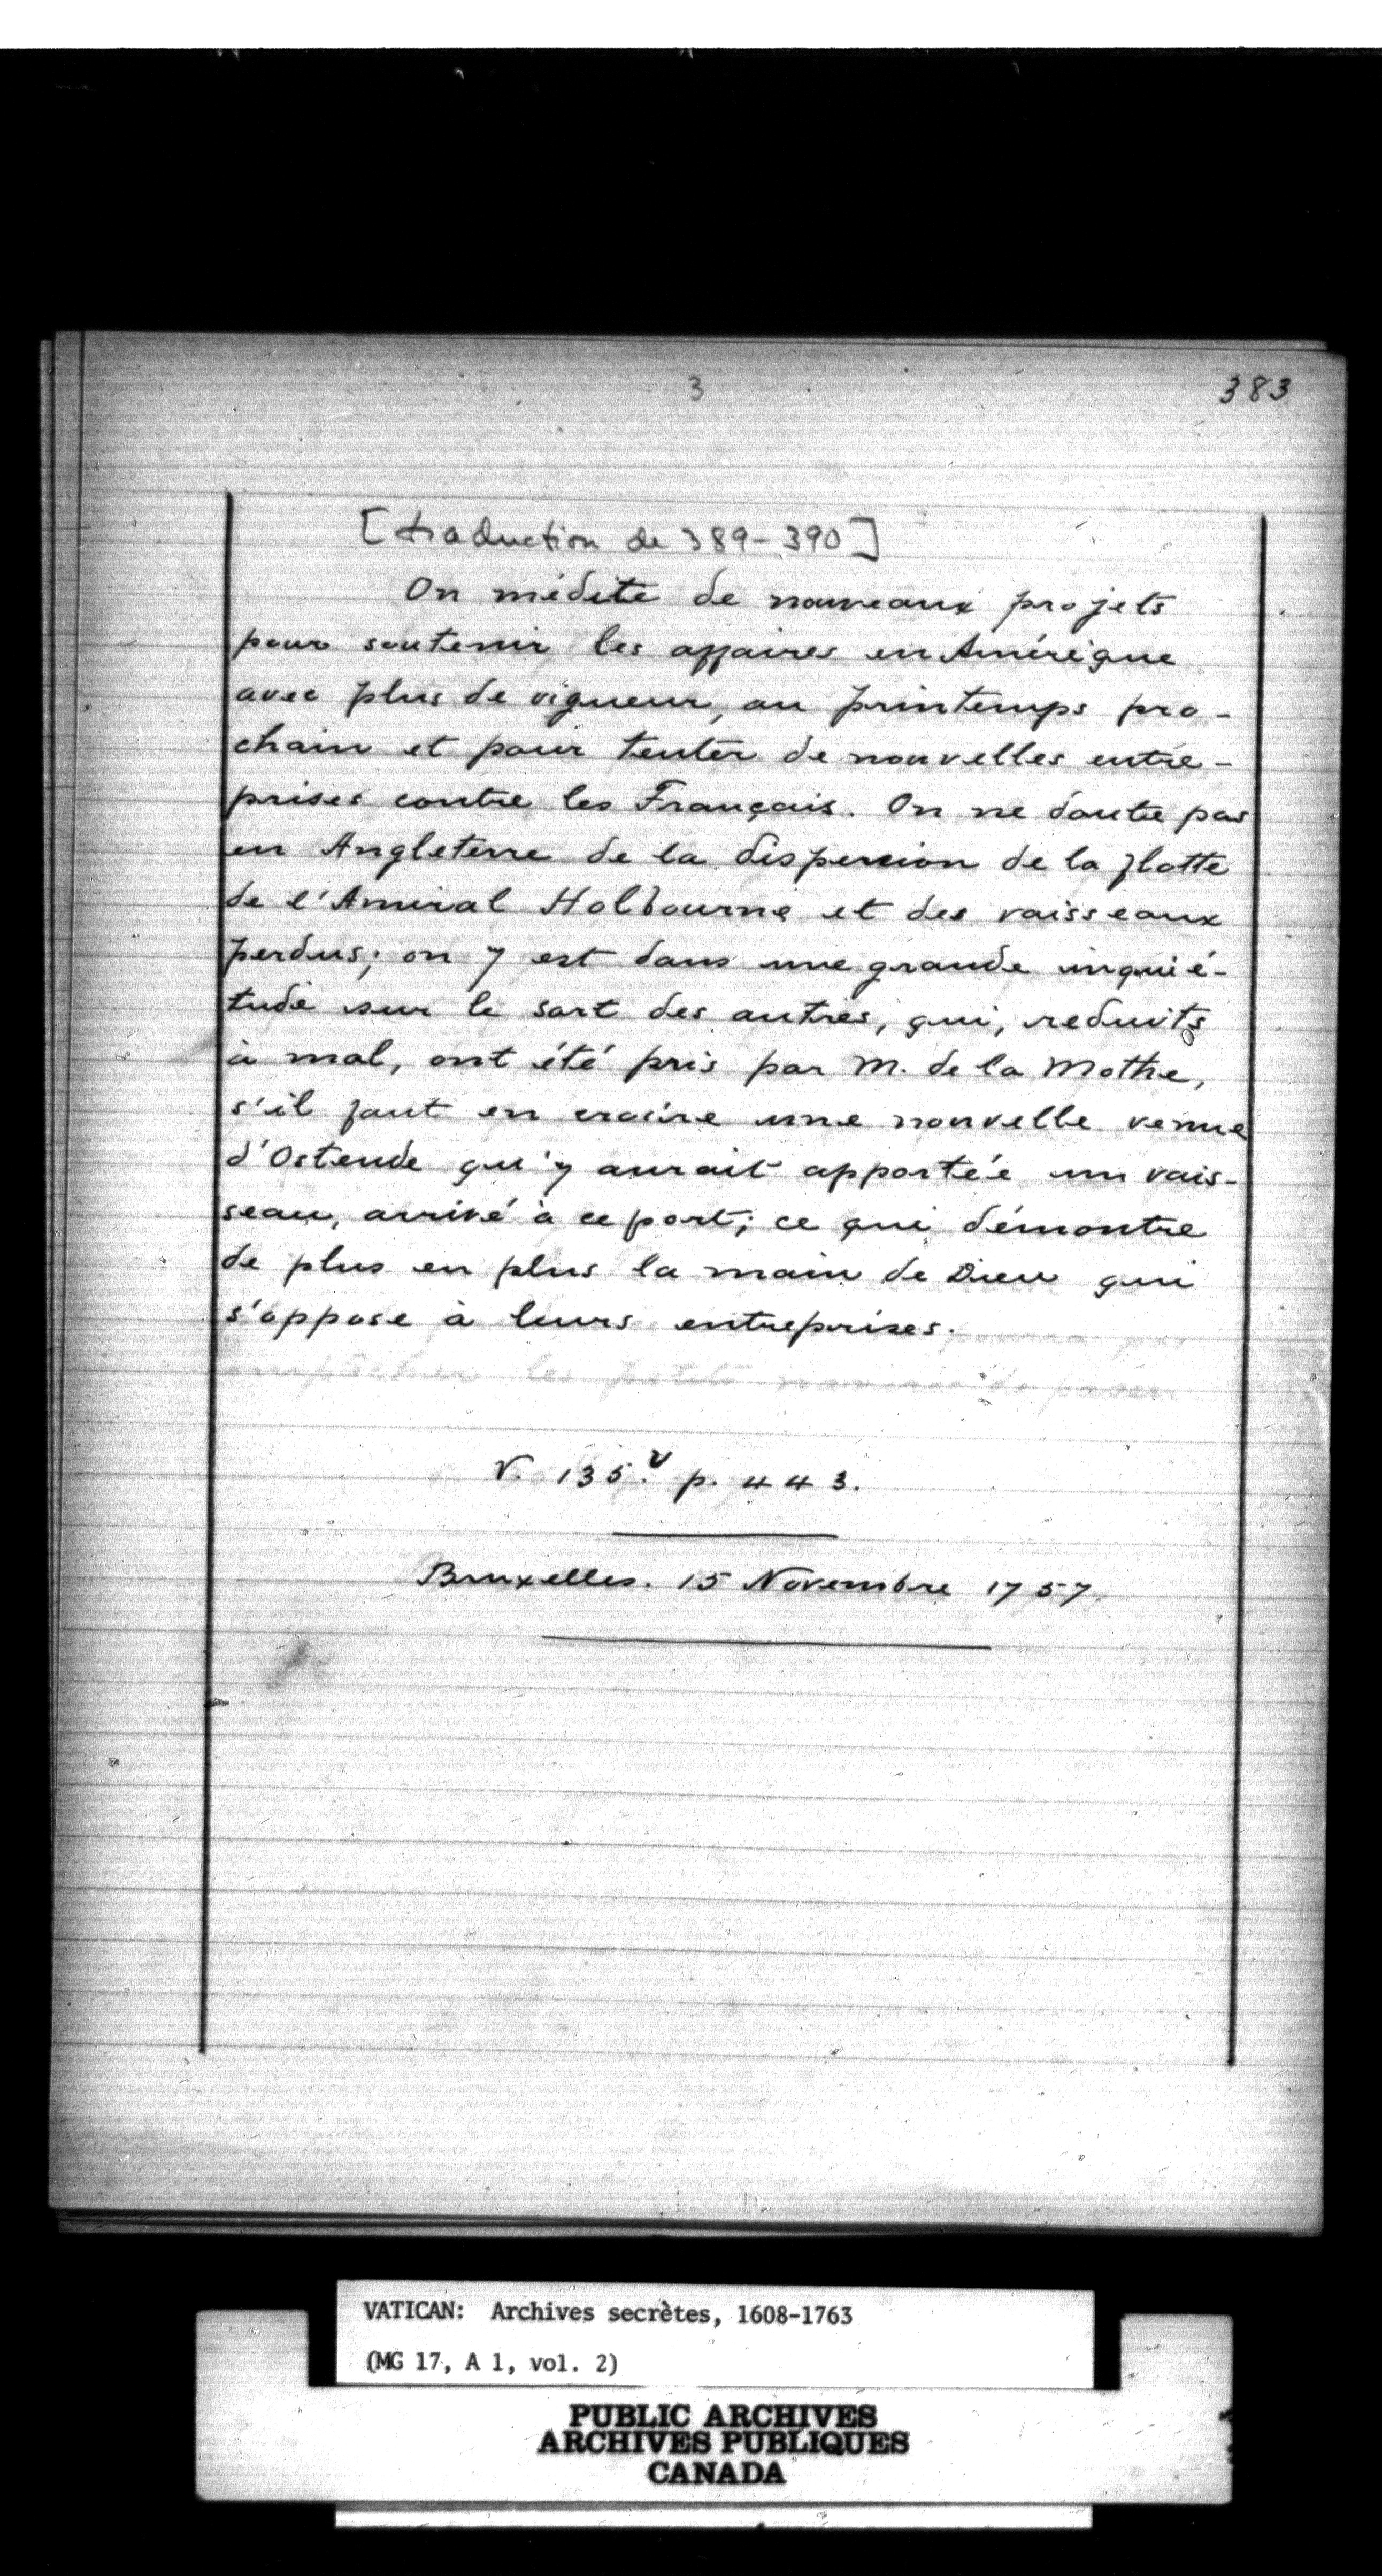 3
383
[traduction de 389-390]
On médite de nouveaux projets
pour soutenir les affaires en Amérique
avec plus de vigueur, au printemps pro-
chain et pour tenter de nouvelles entre-
prises contre les Français. On ne doute pas
en Angleterre de la dispersion de la flotte
de l'Amiral Holbourne et des vaisseaux
perdus; on y est dans une grande inquié-
tude sur le sort des autres, qui, reduits
à mal, ont été pris par M. de la Mothe,
s'il faut en croire une nouvelle venue
d'Ostende qu'y aurait apportée un vais-
seau, arrivé à ce port; ce qui démontre
de plus en plus la main de Dieu qui
s'oppose à leurs entreprises.
les petits
V. 135.v p. 443.
Bruxelles. 15 Novembre 1757.
VATICAN: Archives secrètes, 1608-1763
(MG 17, A 1, vol. 2)
PUBLIC ARCHIVES
ARCHIVES PUBLIQUES
CANADA